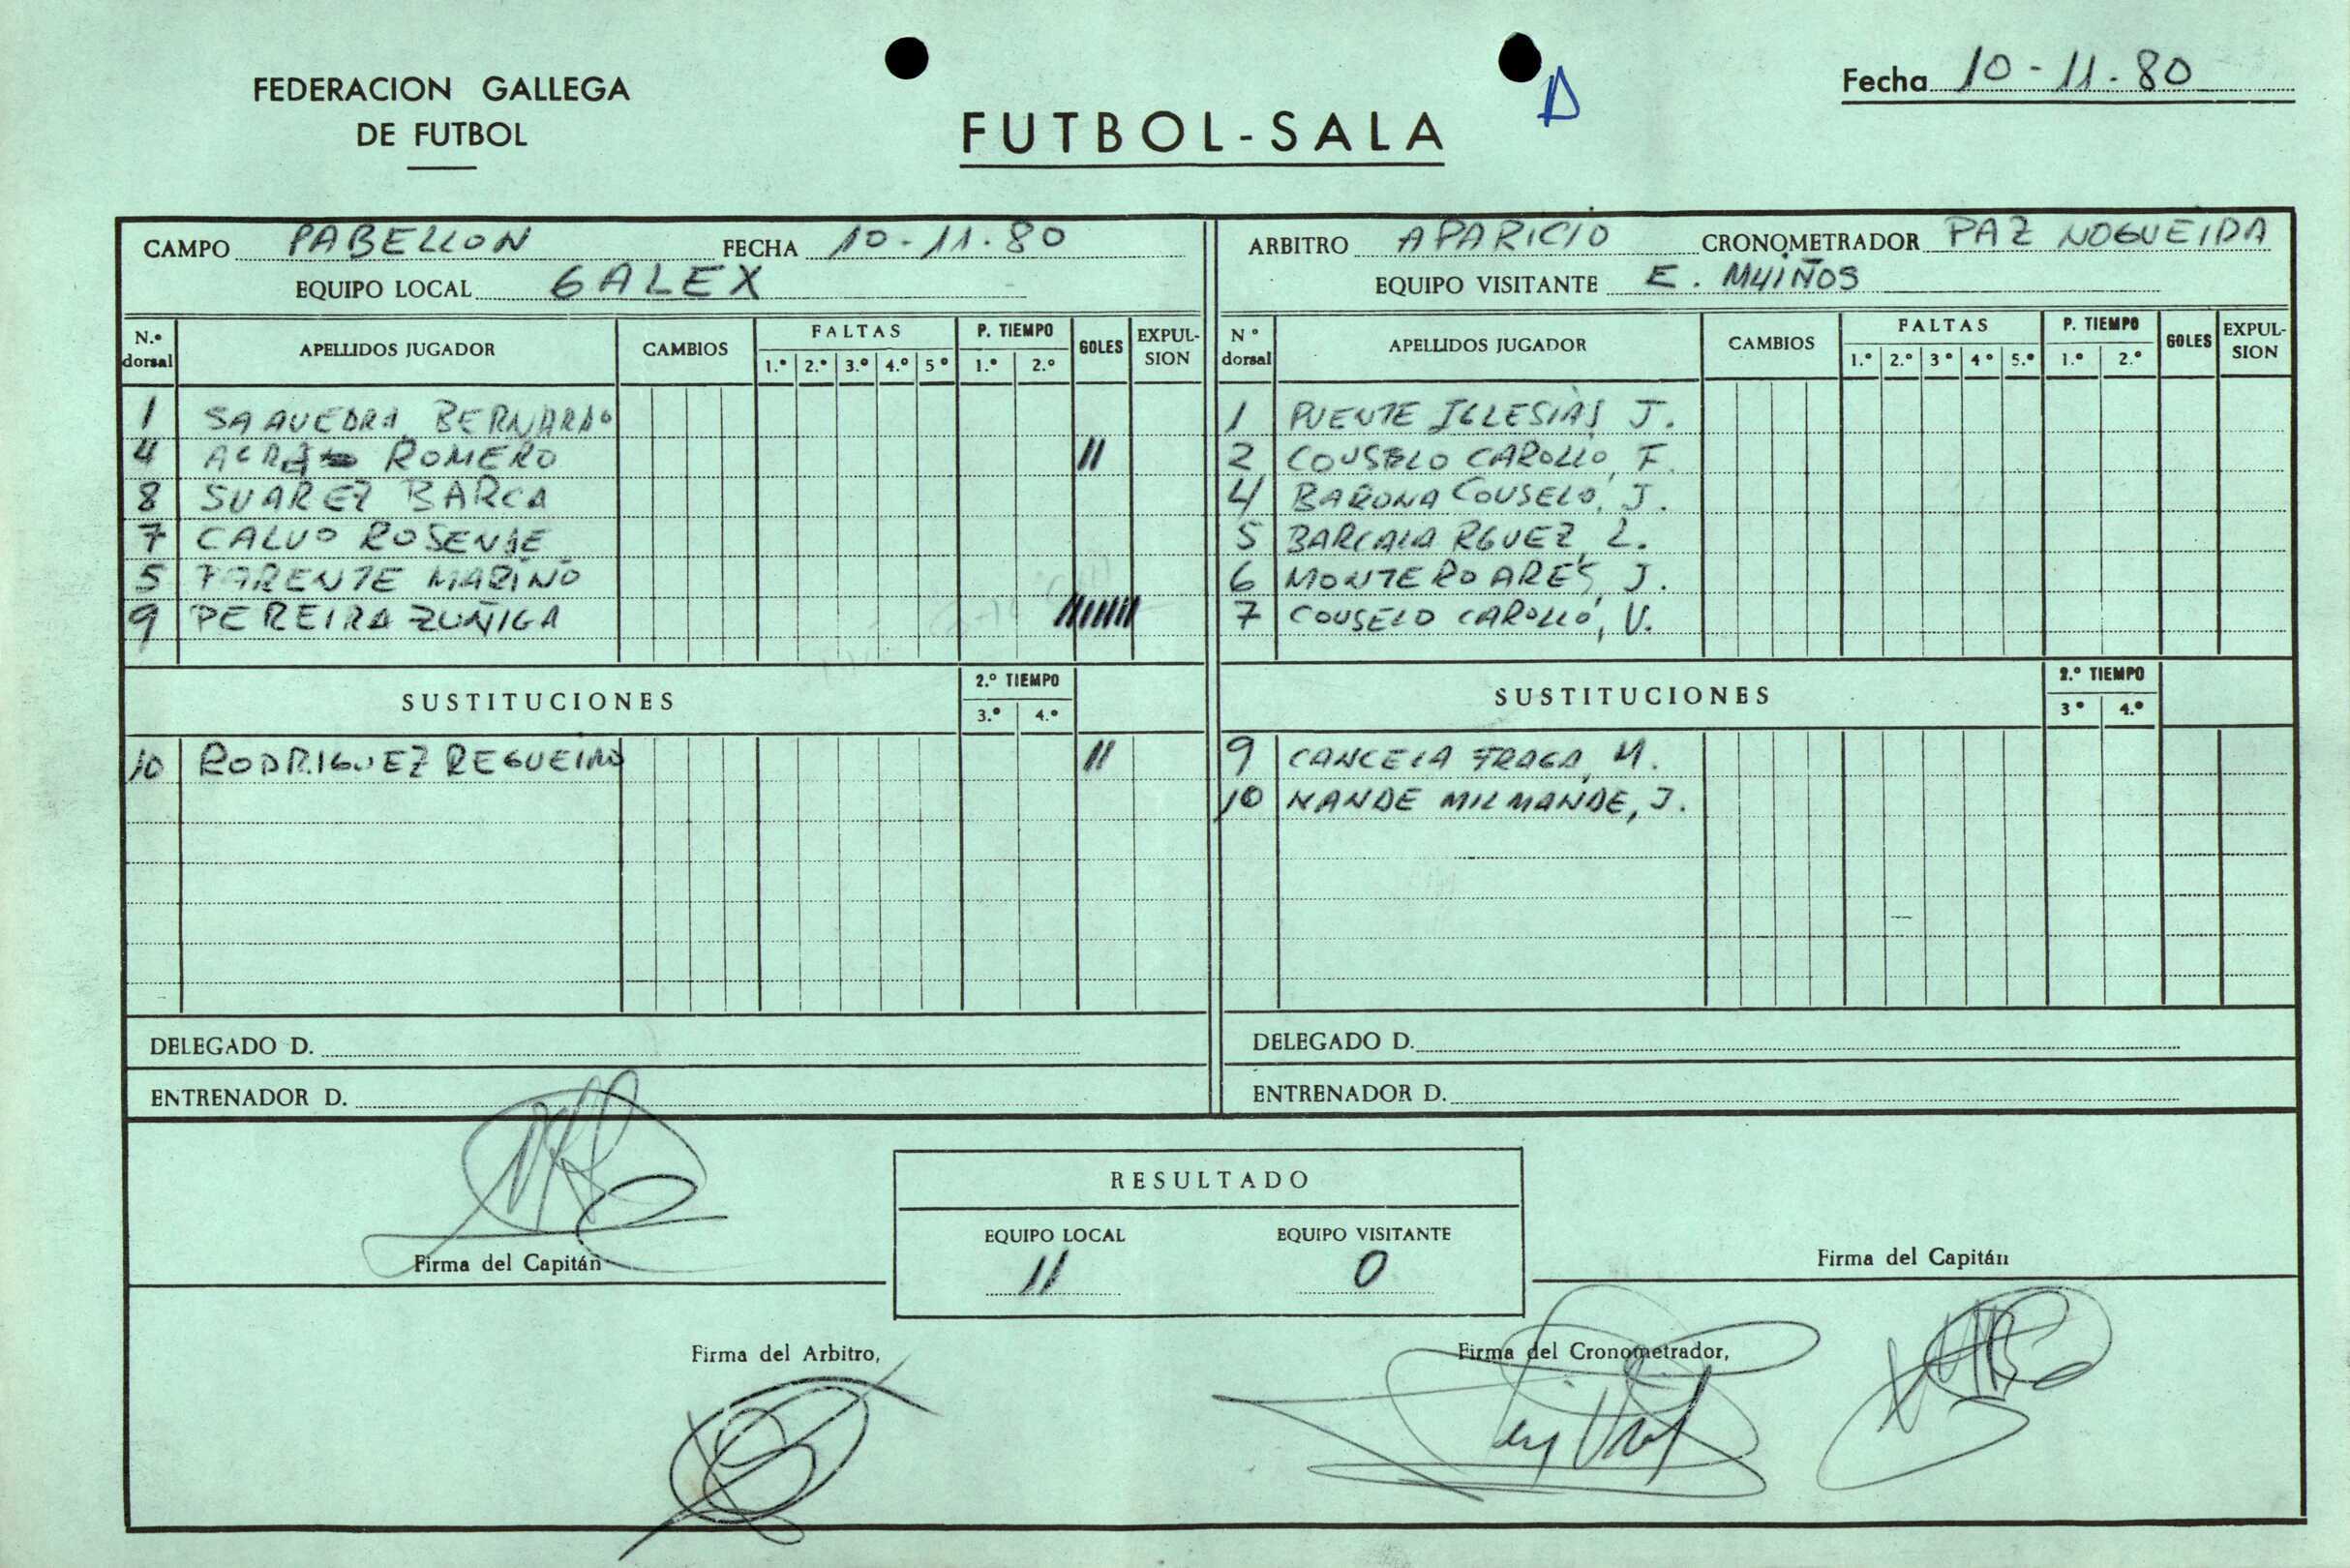 FEDERACION GALLEGA
DE FUTBOL
FUTBOL-SALA
Fecha 10-11-80
CAMPO PABELLON FECHA 10-11-80
EQUIPO LOCAL GALEX
N.º dorsal APELLIDOS JUGADOR CAMBIOS FALTAS 1.º 2.º 3.º 4.º 5º P. TIEMPO 1.º 2.º GOLES EXPULSION
1 SAAVEDRA BERNARDO
4 ROMERO II
8 SUAREZ BARCA
7 CALVO ROSENDE
5 PARENTE MARIÑO
9 PEREIRA ZUÑIGA IIIIIII
SUSTITUCIONES 2.º TIEMPO 3.º 4.º
10 RODRIGUEZ REGUEIRO II
DELEGADO D.
ENTRENADOR D.
ARBITRO APARICIO CRONOMETRADOR PAZ NOGUEIRA
EQUIPO VISITANTE E. MUIÑOS
Nº dorsal APELLIDOS JUGADOR CAMBIOS FALTAS 1.º 2.º 3º 4º 5.º P. TIEMPO 1.º 2.º GOLES EXPULSION
1 PUENTE IGLESIAS J.
2 COUSELO CAROLLO, F.
4 BARONA COUSELO, J.
5 BARCALA RGUEZ, L.
6 MONTERO ARES, J.
7 COUSELO CAROLLO, V.
SUSTITUCIONES 2.º TIEMPO 3º 4.º
9 CANCELA FRAGA, M.
10 NANDE MILMANDE, J.
DELEGADO D.
ENTRENADOR D.
RESULTADO
EQUIPO LOCAL EQUIPO VISITANTE
11 0
Firma del Capitán
Firma del Capitán
Firma del Arbitro,
Firma del Cronometrador,